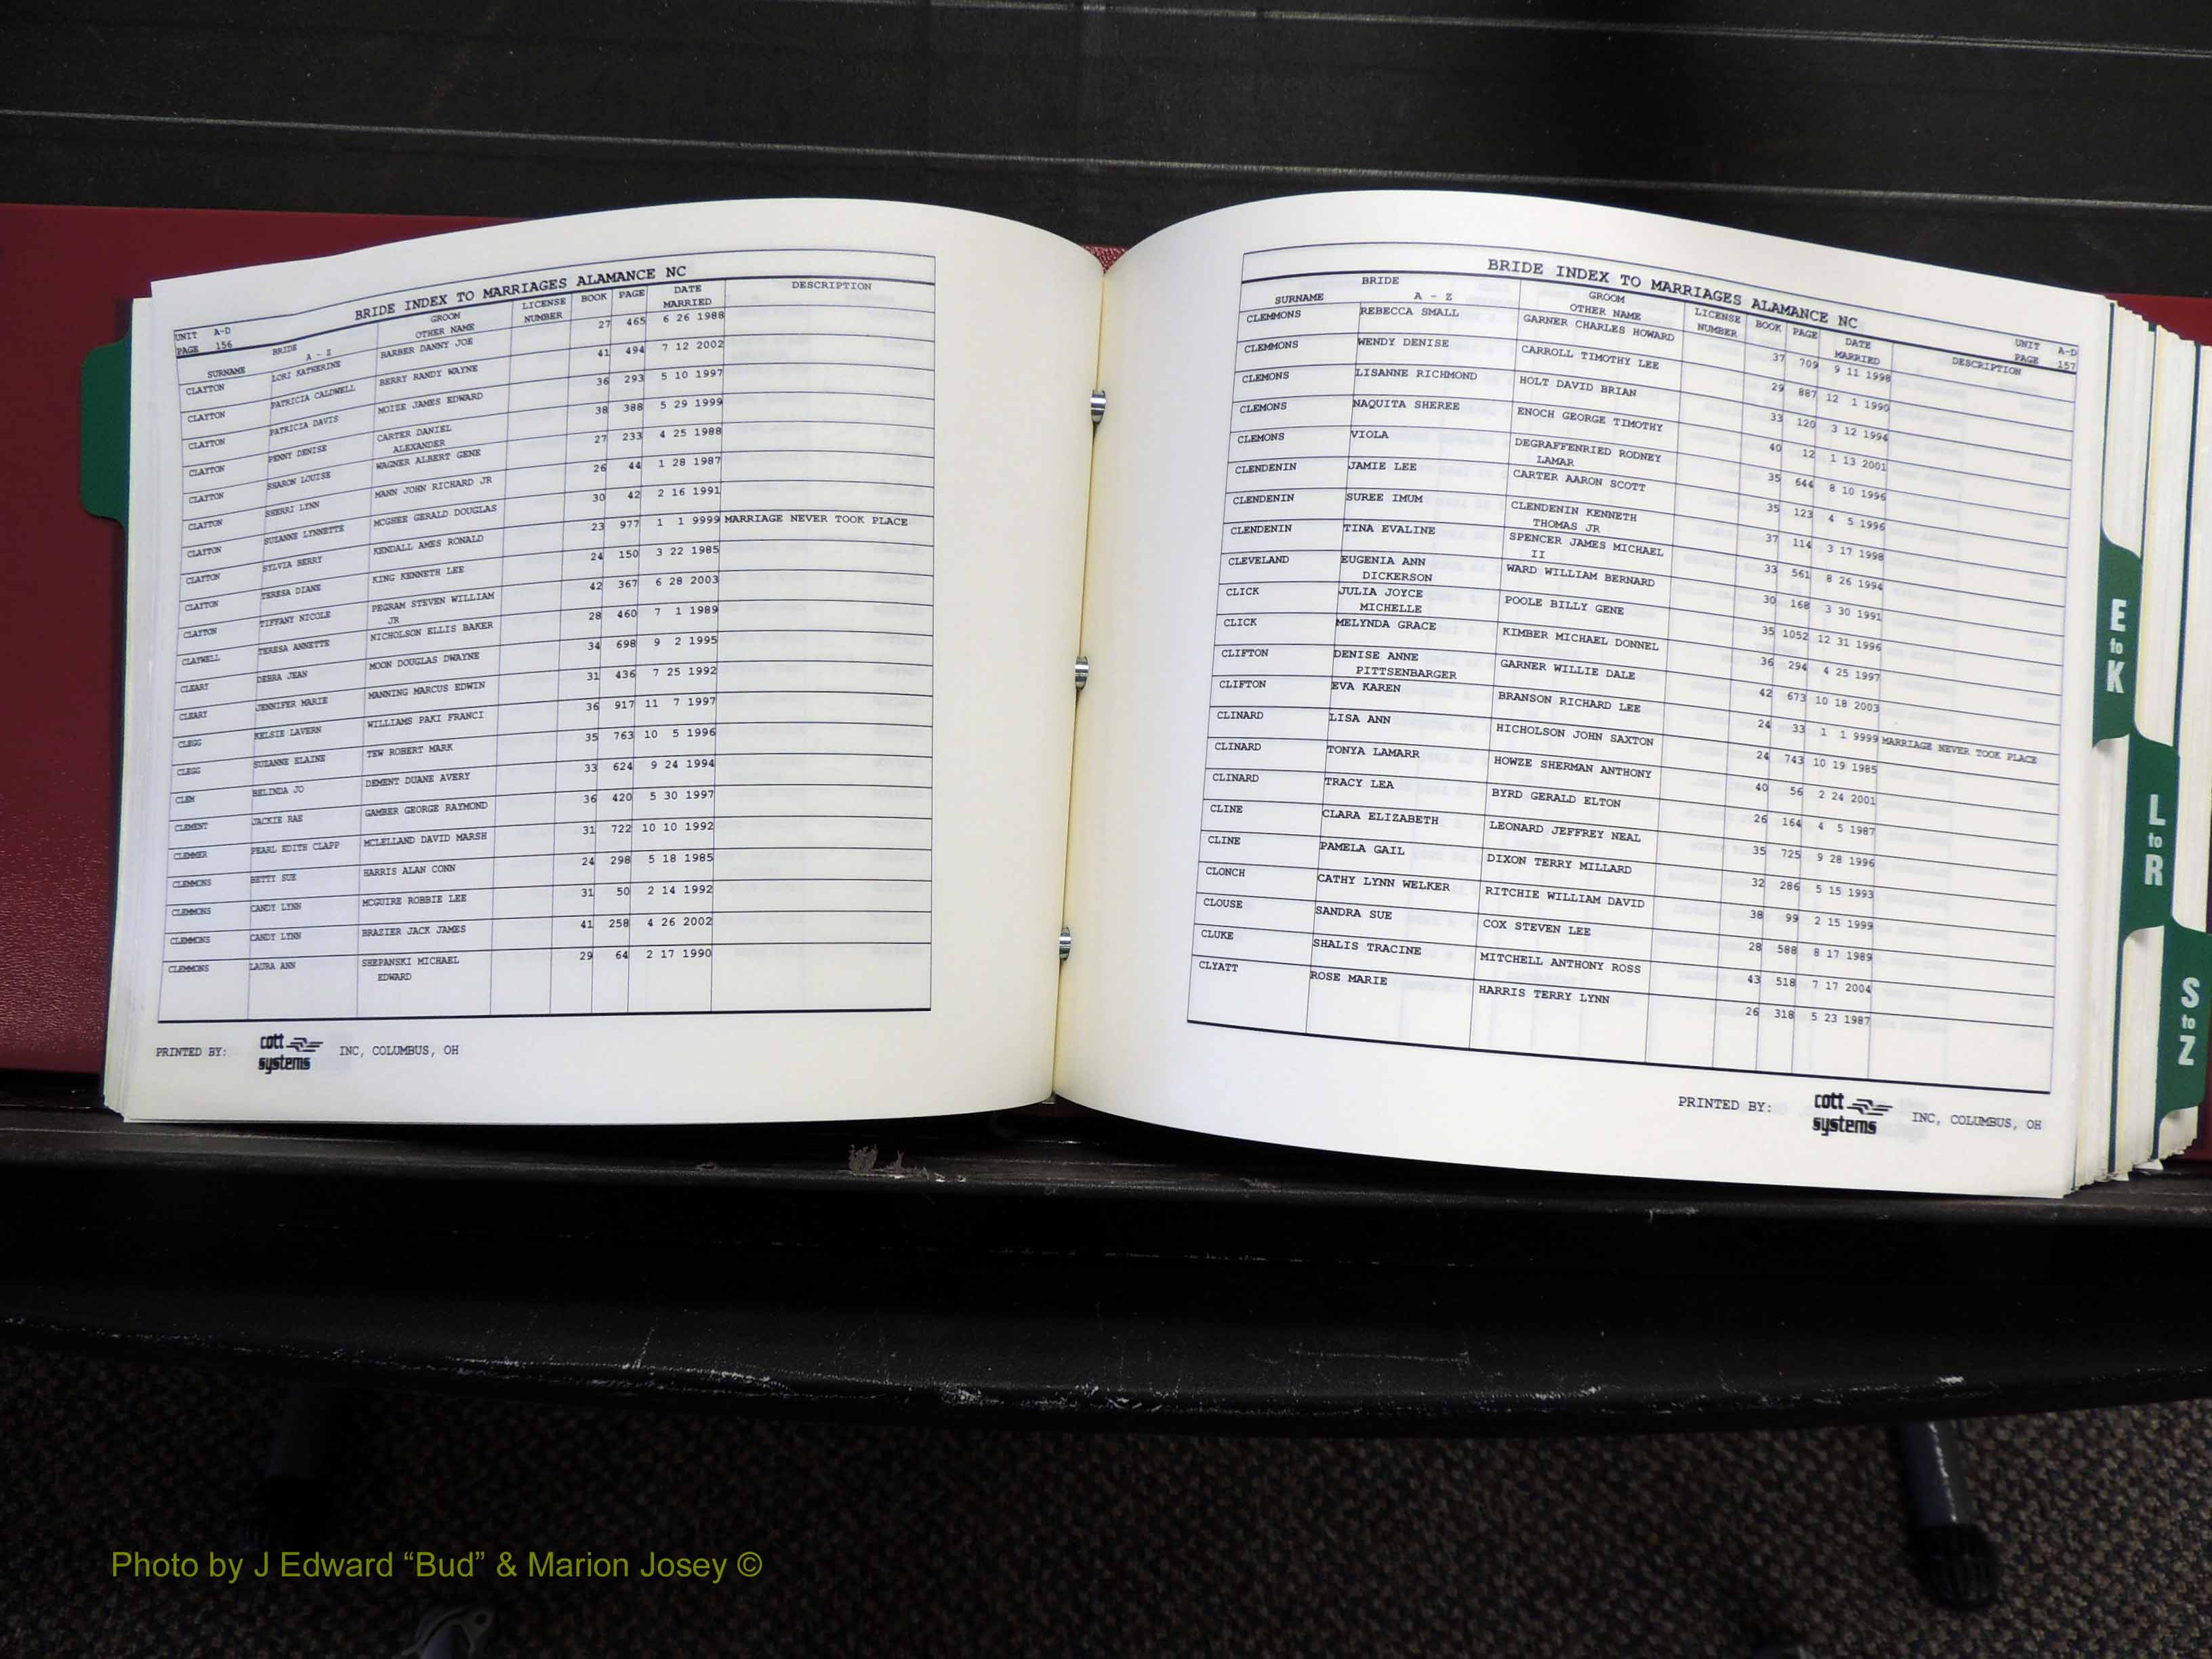 BRIDE INDEX TO MARRIAGES ALAMANCE NC
UNIT A-D
PAGE 156
SURNAME BRIDE A - Z GROOM OTHER NAME LICENSE NUMBER BOOK PAGE DATE MARRIED DESCRIPTION
CLAYTON LORI KATHERINE BARBER DANNY JOE 27 465 6 26 1988
CLAYTON PATRICIA CALDWELL BERRY RANDY WAYNE 41 494 7 12 2002
CLAYTON PATRICIA DAVIS MOIZE JAMES EDWARD 36 293 5 10 1997
CLAYTON PENNY DENISE CARTER DANIEL 38 388 5 29 1999
ALEXANDER
CLAYTON SHARON LOUISE WAGNER ALBERT GENE 27 233 4 25 1988
CLAYTON SHERRI LYNN MANN JOHN RICHARD JR 26 44 1 28 1987
CLAYTON SUZANNE LYNNETTE MCGHEE GERALD DOUGLAS 30 42 2 16 1991
CLAYTON SYLVIA BERRY KENDALL AMES RONALD 23 977 1 1 9999 MARRIAGE NEVER TOOK PLACE
CLAYTON TERESA DIANE KING KENNETH LEE 24 150 3 22 1985
CLAYTON TIFFANY NICOLE PEGRAM STEVEN WILLIAM 42 367 6 28 2003
JR
CLAYWELL TERESA ANNETTE NICHOLSON ELLIS BAKER 28 460 7 1 1989
CLEARY DEBRA JEAN MOON DOUGLAS DWAYNE 34 698 9 2 1995
CLEARY JENNIFER MARIE MANNING MARCUS EDWIN 31 436 7 25 1992
CLEGG KELSIE LAVERN WILLIAMS PAKI FRANCI 36 917 11 7 1997
CLEGG SUZANNE ELAINE TEW ROBERT MARK 35 763 10 5 1996
CLEM BELINDA JO DEMENT DUANE AVERY 33 624 9 24 1994
CLEMENT JACKIE RAE GAMBER GEORGE RAYMOND 36 420 5 30 1997
CLEMMER PEARL EDITH CLAPP MCLELLAND DAVID MARSH 31 722 10 10 1992
CLEMMONS BETTY SUE HARRIS ALAN CONN 24 298 5 18 1985
CLEMMONS CANDY LYNN MCGUIRE ROBBIE LEE 31 50 2 14 1992
CLEMMONS CANDY LYNN BRAZIER JACK JAMES 41 258 4 26 2002
CLEMMONS LAURA ANN SHEPANSKI MICHAEL 29 64 2 17 1990
EDWARD
PRINTED BY: cott systems INC, COLUMBUS, OH
BRIDE INDEX TO MARRIAGES ALAMANCE NC
UNIT A-D
PAGE 157
SURNAME BRIDE A - Z GROOM OTHER NAME LICENSE NUMBER BOOK PAGE DATE MARRIED DESCRIPTION
CLEMMONS REBECCA SMALL GARNER CHARLES HOWARD 37 709 9 11 1998
CLEMMONS WENDY DENISE CARROLL TIMOTHY LEE 29 887 12 1 1990
CLEMONS LISANNE RICHMOND HOLT DAVID BRIAN 33 120 3 12 1994
CLEMONS NAQUITA SHEREE ENOCH GEORGE TIMOTHY 40 12 1 13 2001
CLEMONS VIOLA DEGRAFFENRIED RODNEY 35 644 8 10 1996
LAMAR
CLENDENIN JAMIE LEE CARTER AARON SCOTT 35 123 4 5 1996
CLENDENIN SUREE IMUM CLENDENIN KENNETH 37 114 3 17 1998
THOMAS JR
CLENDENIN TINA EVALINE SPENCER JAMES MICHAEL 33 561 8 26 1994
II
CLEVELAND EUGENIA ANN WARD WILLIAM BERNARD 30 168 3 30 1991
DICKERSON
CLICK JULIA JOYCE POOLE BILLY GENE 35 1052 12 31 1996
MICHELLE
CLICK MELYNDA GRACE KIMBER MICHAEL DONNEL 36 294 4 25 1997
CLIFTON DENISE ANNE GARNER WILLIE DALE 42 673 10 18 2003
PITTSENBARGER
CLIFTON EVA KAREN BRANSON RICHARD LEE 24 33 1 1 9999 MARRIAGE NEVER TOOK PLACE
CLINARD LISA ANN HICHOLSON JOHN SAXTON 24 743 10 19 1985
CLINARD TONYA LAMARR HOWZE SHERMAN ANTHONY 40 56 2 24 2001
CLINARD TRACY LEA BYRD GERALD ELTON 26 164 4 5 1987
CLINE CLARA ELIZABETH LEONARD JEFFREY NEAL 35 725 9 28 1996
CLINE PAMELA GAIL DIXON TERRY MILLARD 32 286 5 15 1993
CLONCH CATHY LYNN WELKER RITCHIE WILLIAM DAVID 38 99 2 15 1999
CLOUSE SANDRA SUE COX STEVEN LEE 28 588 8 17 1989
CLUKE SHALIS TRACINE MITCHELL ANTHONY ROSS 43 518 7 17 2004
CLYATT ROSE MARIE HARRIS TERRY LYNN 26 318 5 23 1987
PRINTED BY: cott systems INC, COLUMBUS, OH
E to K
L to R
S to Z
Photo by J Edward “Bud” & Marion Josey ©